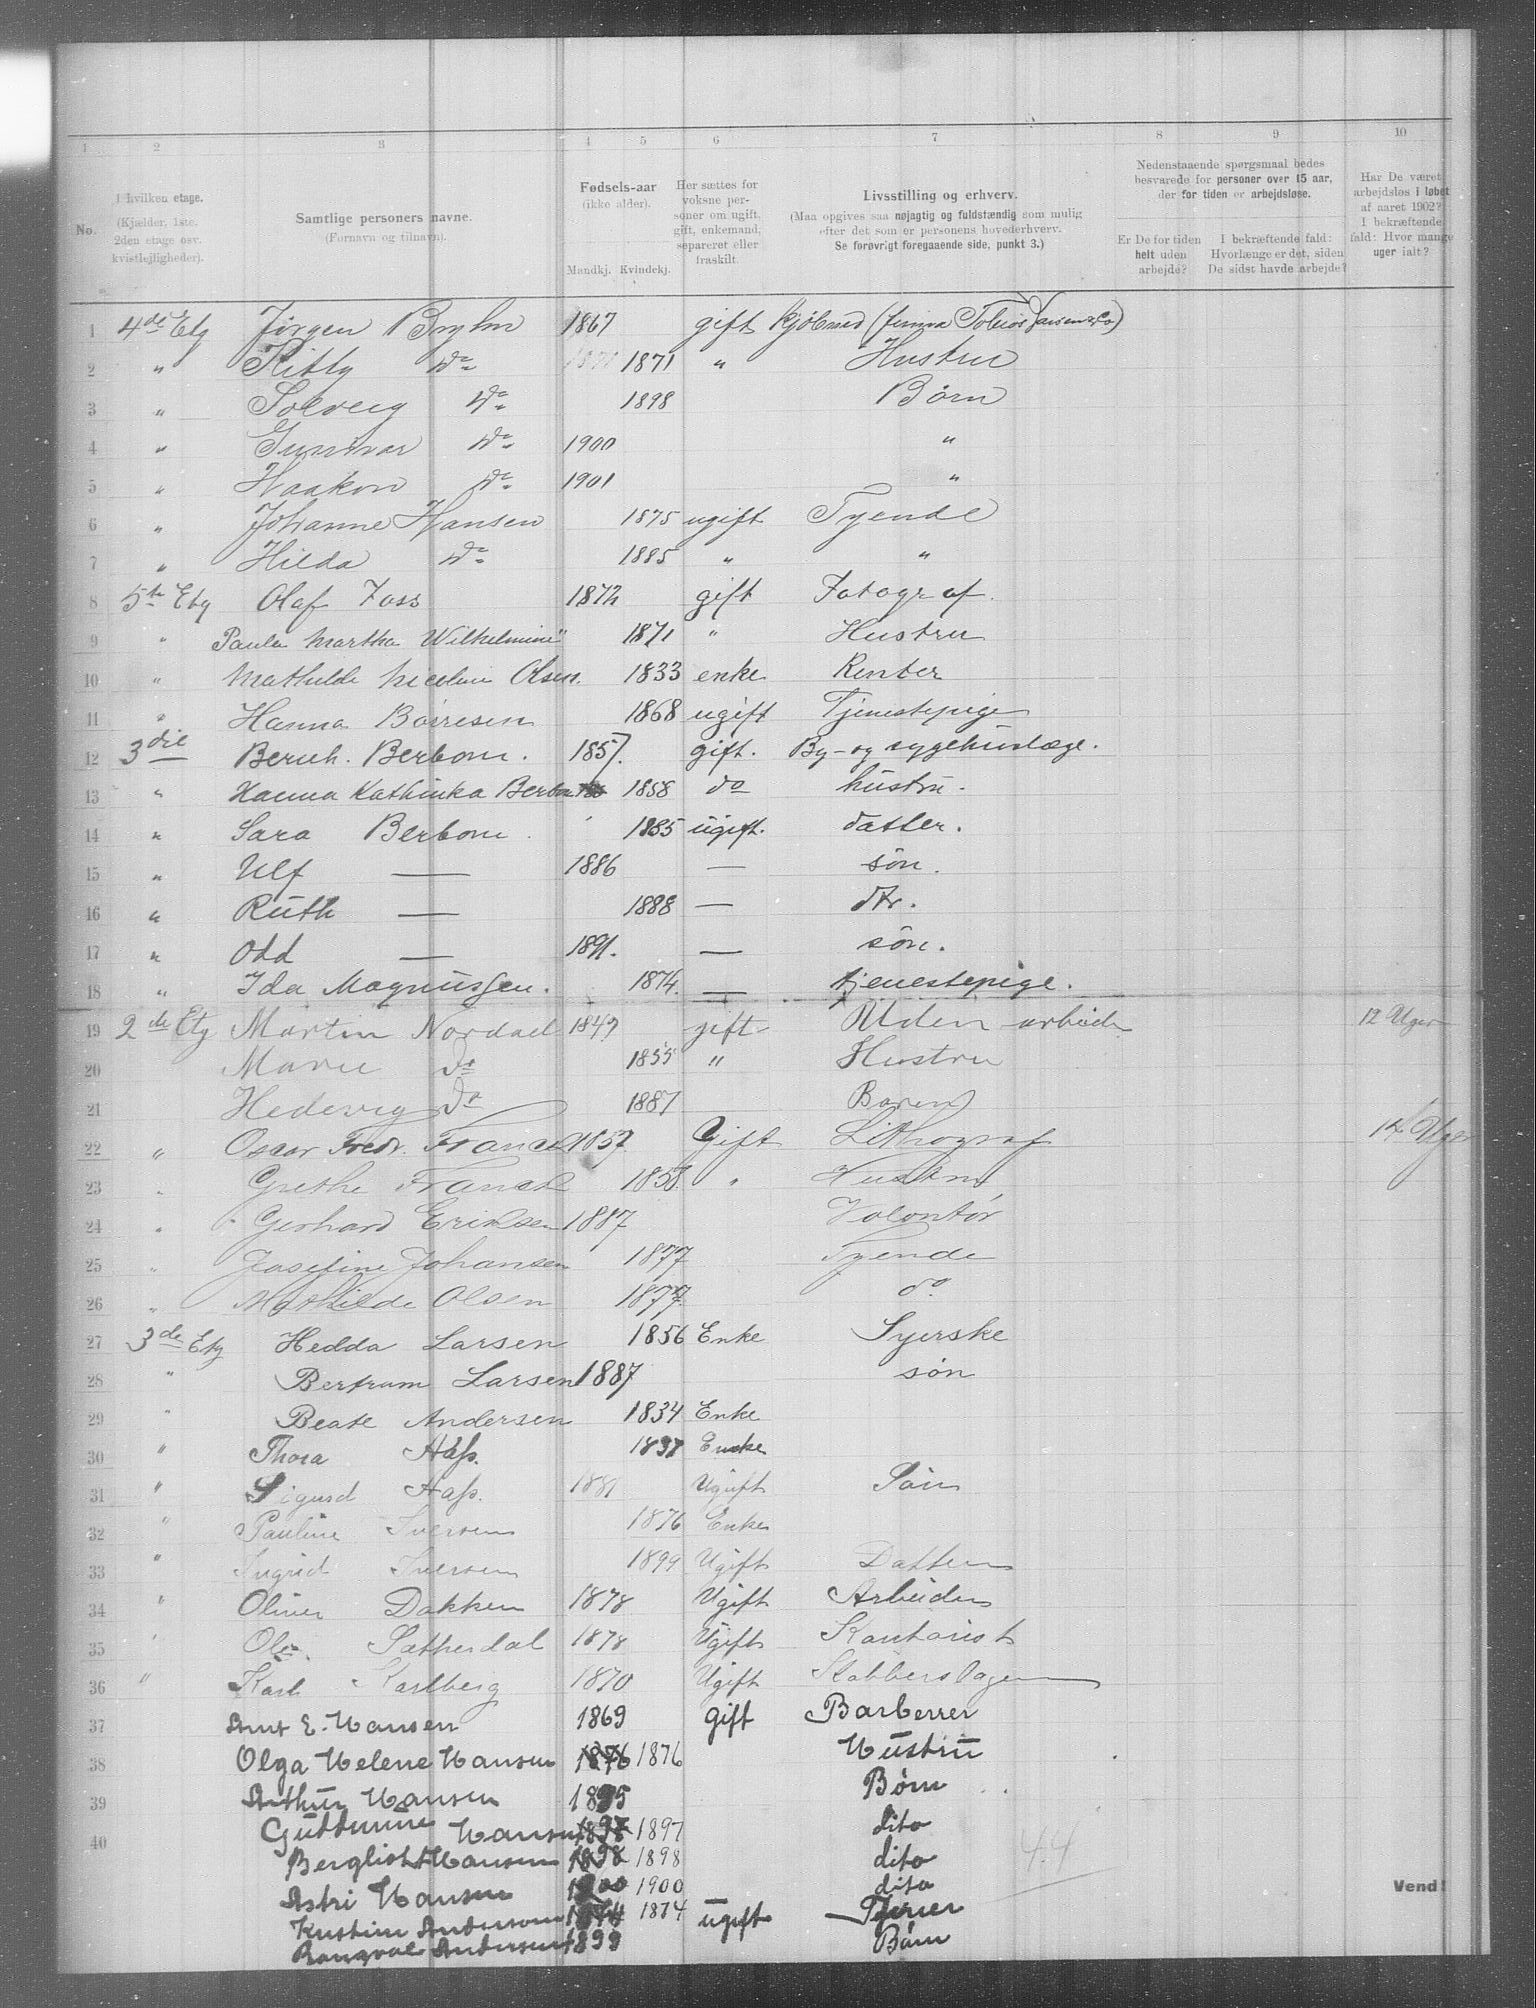 1 2 3 4 5 6 7 8 9 10
No.
I hvilken etage.
(Kjælder, 1ste.
2den etage osv.
kvistlejligheder).
Samtlige personers navne.
(Fornavn og tilnavn).
Fødsels-aar
(ikke alder).
Mandkj. Kvindekj.
Her sættes for
voksne per-
soner om ugift,
gift, enkemand,
separeret eller
fraskilt.
Livsstilling og erhverv.
(Maa opgives saa nøjagtig og fuldstændig som mulig
efter det som er personens hovederhverv.
Se forøvrigt foregaaende side, punkt 3.)
Nedenstaaende spørgsmaal bedes
besvarede for personer over 15 aar,
der for tiden er arbejdsløse.
Er De for tiden
helt uden
arbejde?
I bekræftende fald:
Hvorlænge er det, siden
De sidst havde arbejde?
Har De været
arbejdsløs i løbet
af aaret 1902?
I bekræftende
fald: Hvor mange
uger ialt?
1 4de Etg Jørgen Bryhn 1867 gift Kjøbmd (firma Tobias Larsen & Co)
2 " Kitty do 1871 1871 " Hustru
3 " Solveig do 1898 Børn
4 " Gunnar do 1900 "
5 " Haakon do 1901 "
6 " Johanne Hansen 1875 ugift Tyende
7 " Hilda do 1885 " "
8 5te Etg Olaf Foss 1872 gift Fotograf.
9 " Paula Martha Wilhelmine " 1871 " Hustru
10 " Mathilde Nicoline Olsen. 1833 enke Renter
11 " Hanna Børresen 1868 ugift Tjenestepige
12 3die Bernh. Berbom. 1857. gift. By- og sygehuslæge.
13 " Hanna Kathinka Berbom 1858 do hustru.
14 " Sara Berbom. 1885 ugift. datter.
15 " Ulf — 1886 — søn.
16 " Ruth — 1888 — dtr.
17 " Odd — 1891. — søn.
18 " Ida Magnussen. 1874. — tjenestepige.
19 2de Etg Martin Nordal 1849 gift Uden arbeide 12 Uger
20 Marie do 1855 " Hustru
21 Hedevig do 1887 Baren
22 " Oscar Fredr. Franck 1857 Gift Lithograf 14 Uger
23 " Grethe Franck 1858. " Hustru
24 " Gerhard Eriksen 1887 Volontør
25 " Josefine Johansen 1877 Tyende
26 " Mathilde Olsen 1877. do
27 3de Etg Hedda Larsen 1856 Enke Syerske
28 " Bertram Larsen 1887 søn
29 " Beate Andersen 1834 Enke
30 " Thora Aass. 1837 Enke
31 " Sigurd Aass. 1881 Ugift Søn
32 " Pauline Iversen 1876 Enke
33 " Ingrid Iversen 1899 Ugift Datter
34 " Oliver Dakken 1878 Ugift Arbeider
35 " Ole Sætherdal 1878 Ugift Kontorist
36 " Karl Karlberg 1870 Ugift Klobberslager
37 Arnt E. Hansen 1869 gift Barberer
38 Olga Helene Hansen 1876 1876 Hustru
39 Arthur Hansen 1895 Børn
40 Hansen 1897 1897 dito
Hansen 1898 1898 dito
Astri Hansen 1900 1900 dito
Kristine Andersen 1874 1874 ugift
Rangval Andersen 1899 Børn
44
Vend!